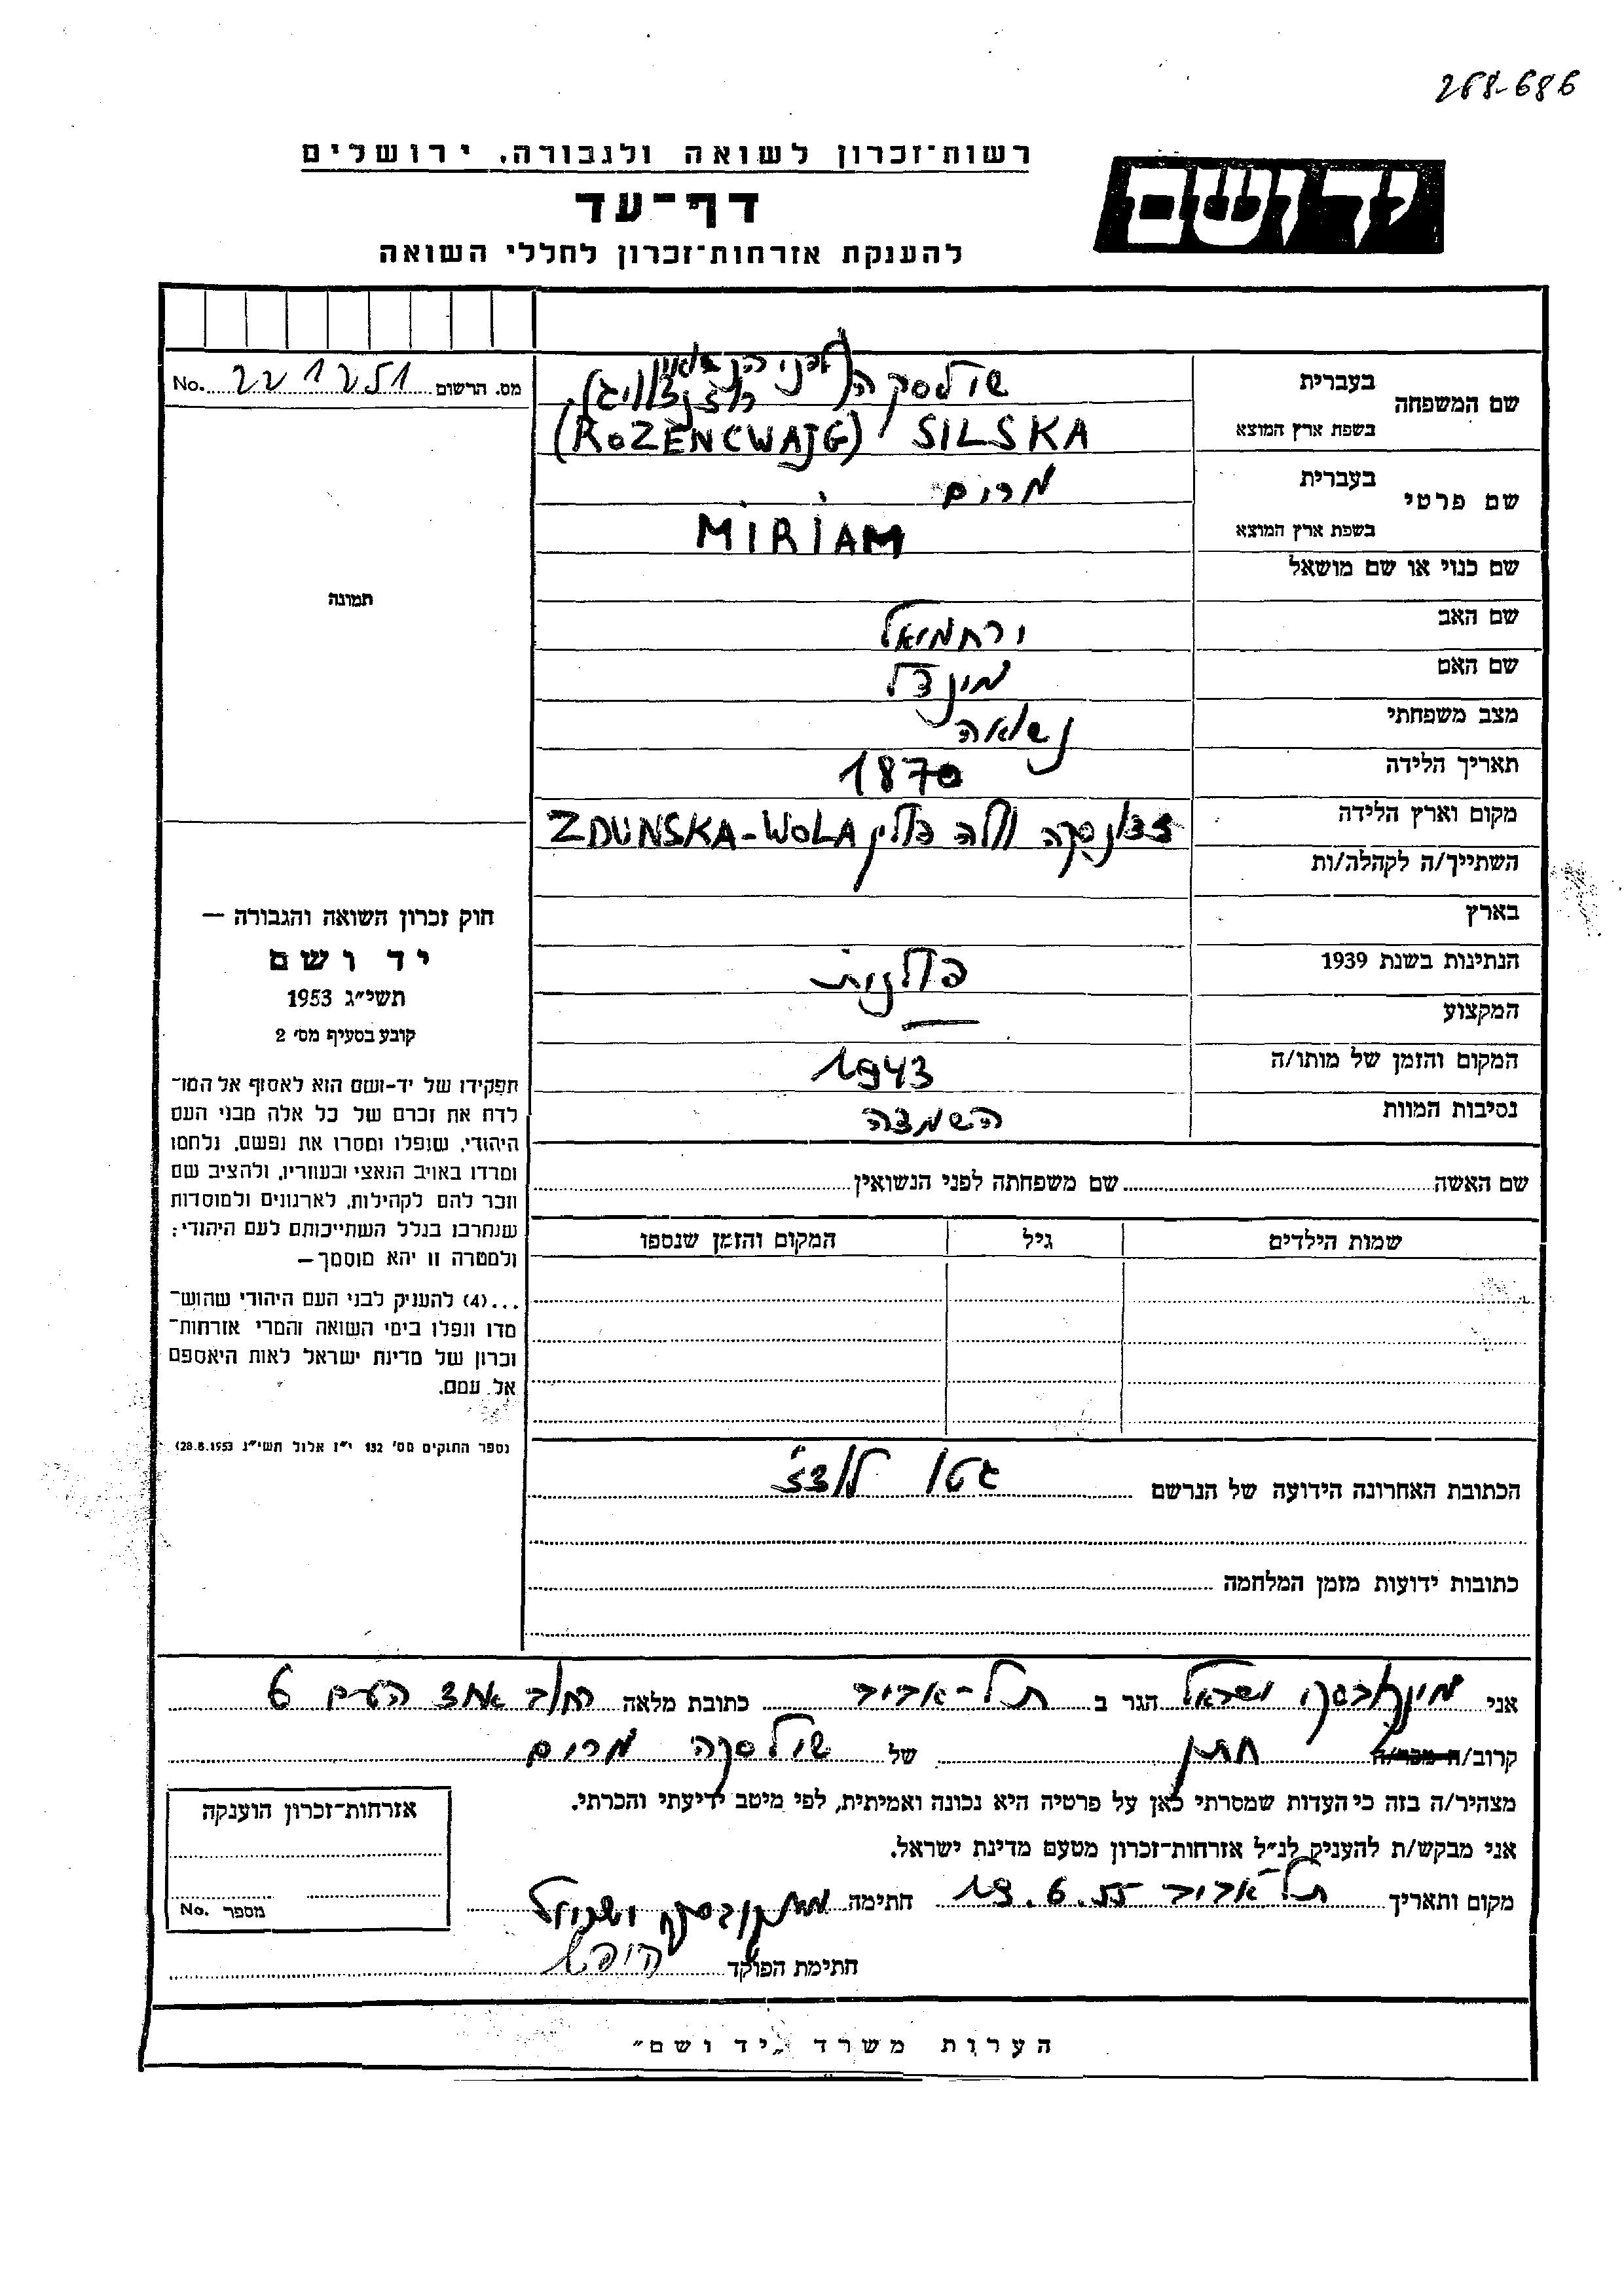 268-686
רשות־זכרון לשואה ולגבורה, ירושלים
יד ושם
דף־עד
להענקת אזרחות־זכרון לחללי השואה
מס. הרשום 221251 No.
שם המשפחה
בעברית שילסקה (לפני הנישואין רוזנצוויג)
בשפת ארץ המוצא (ROZENCWAJG) SILSKA
שם פרטי
בעברית מרים
בשפת ארץ המוצא MIRIAM
שם כנוי או שם מושאל
תמונה
שם האב ירחמיאל
שם האם מינדל
מצב משפחתי נשואה
תאריך הלידה 1870
מקום וארץ הלידה זדונסקה וולה פולין ZDUNSKA-WOLA
השתייך/ה לקהלה/ות
בארץ
הנתינות בשנת 1939 פולנית
המקצוע —
המקום והזמן של מותו/ה 1943
נסיבות המוות השמדה
חוק זכרון השואה והגבורה —
יד ושם
תשי״ג 1953
קובע בסעיף מס׳ 2
תפקידו של יד-ושם הוא לאסוף אל המו־
לדת את זכרם של כל אלה מבני העם
היהודי, שנפלו ומסרו את נפשם, נלחמו
ומרדו באויב הנאצי ובעוזריו, ולהציב שם
וזכר להם לקהילות, לארגונים ולמוסדות
שנחרבו בגלל השתייכותם לעם היהודי;
ולמטרה זו יהא מוסמך —
...(4) להעניק לבני העם היהודי שהוש־
מדו ונפלו בימי השואה והמרי אזרחות־
זכרון של מדינת ישראל לאות היאספם
אל עמם.
(ספר החוקים מס׳ 132 י״ז אלול תשי״ג 28.8.1953)
שם האשה שם משפחתה לפני הנשואין
שמות הילדים גיל המקום והזמן שנספו
הכתובת האחרונה הידועה של הנרשם גטו לודז׳
כתובות ידועות מזמן המלחמה
אני ישראל הגר ב תל-אביב כתובת מלאה רחוב אחד העם 6
קרוב/ה מכר/ה חתן של שילסקה מרים
מצהיר/ה בזה כי העדות שמסרתי כאן על פרטיה היא נכונה ואמיתית, לפי מיטב ידיעתי והכרתי.
אני מבקש/ת להעניק לנ״ל אזרחות־זכרון מטעם מדינת ישראל.
מקום ותאריך תל-אביב 19.6.55 חתימה ישראל
חתימת הפוקד
אזרחות־זכרון הוענקה
מספר No.
הערות משרד „יד ושם״